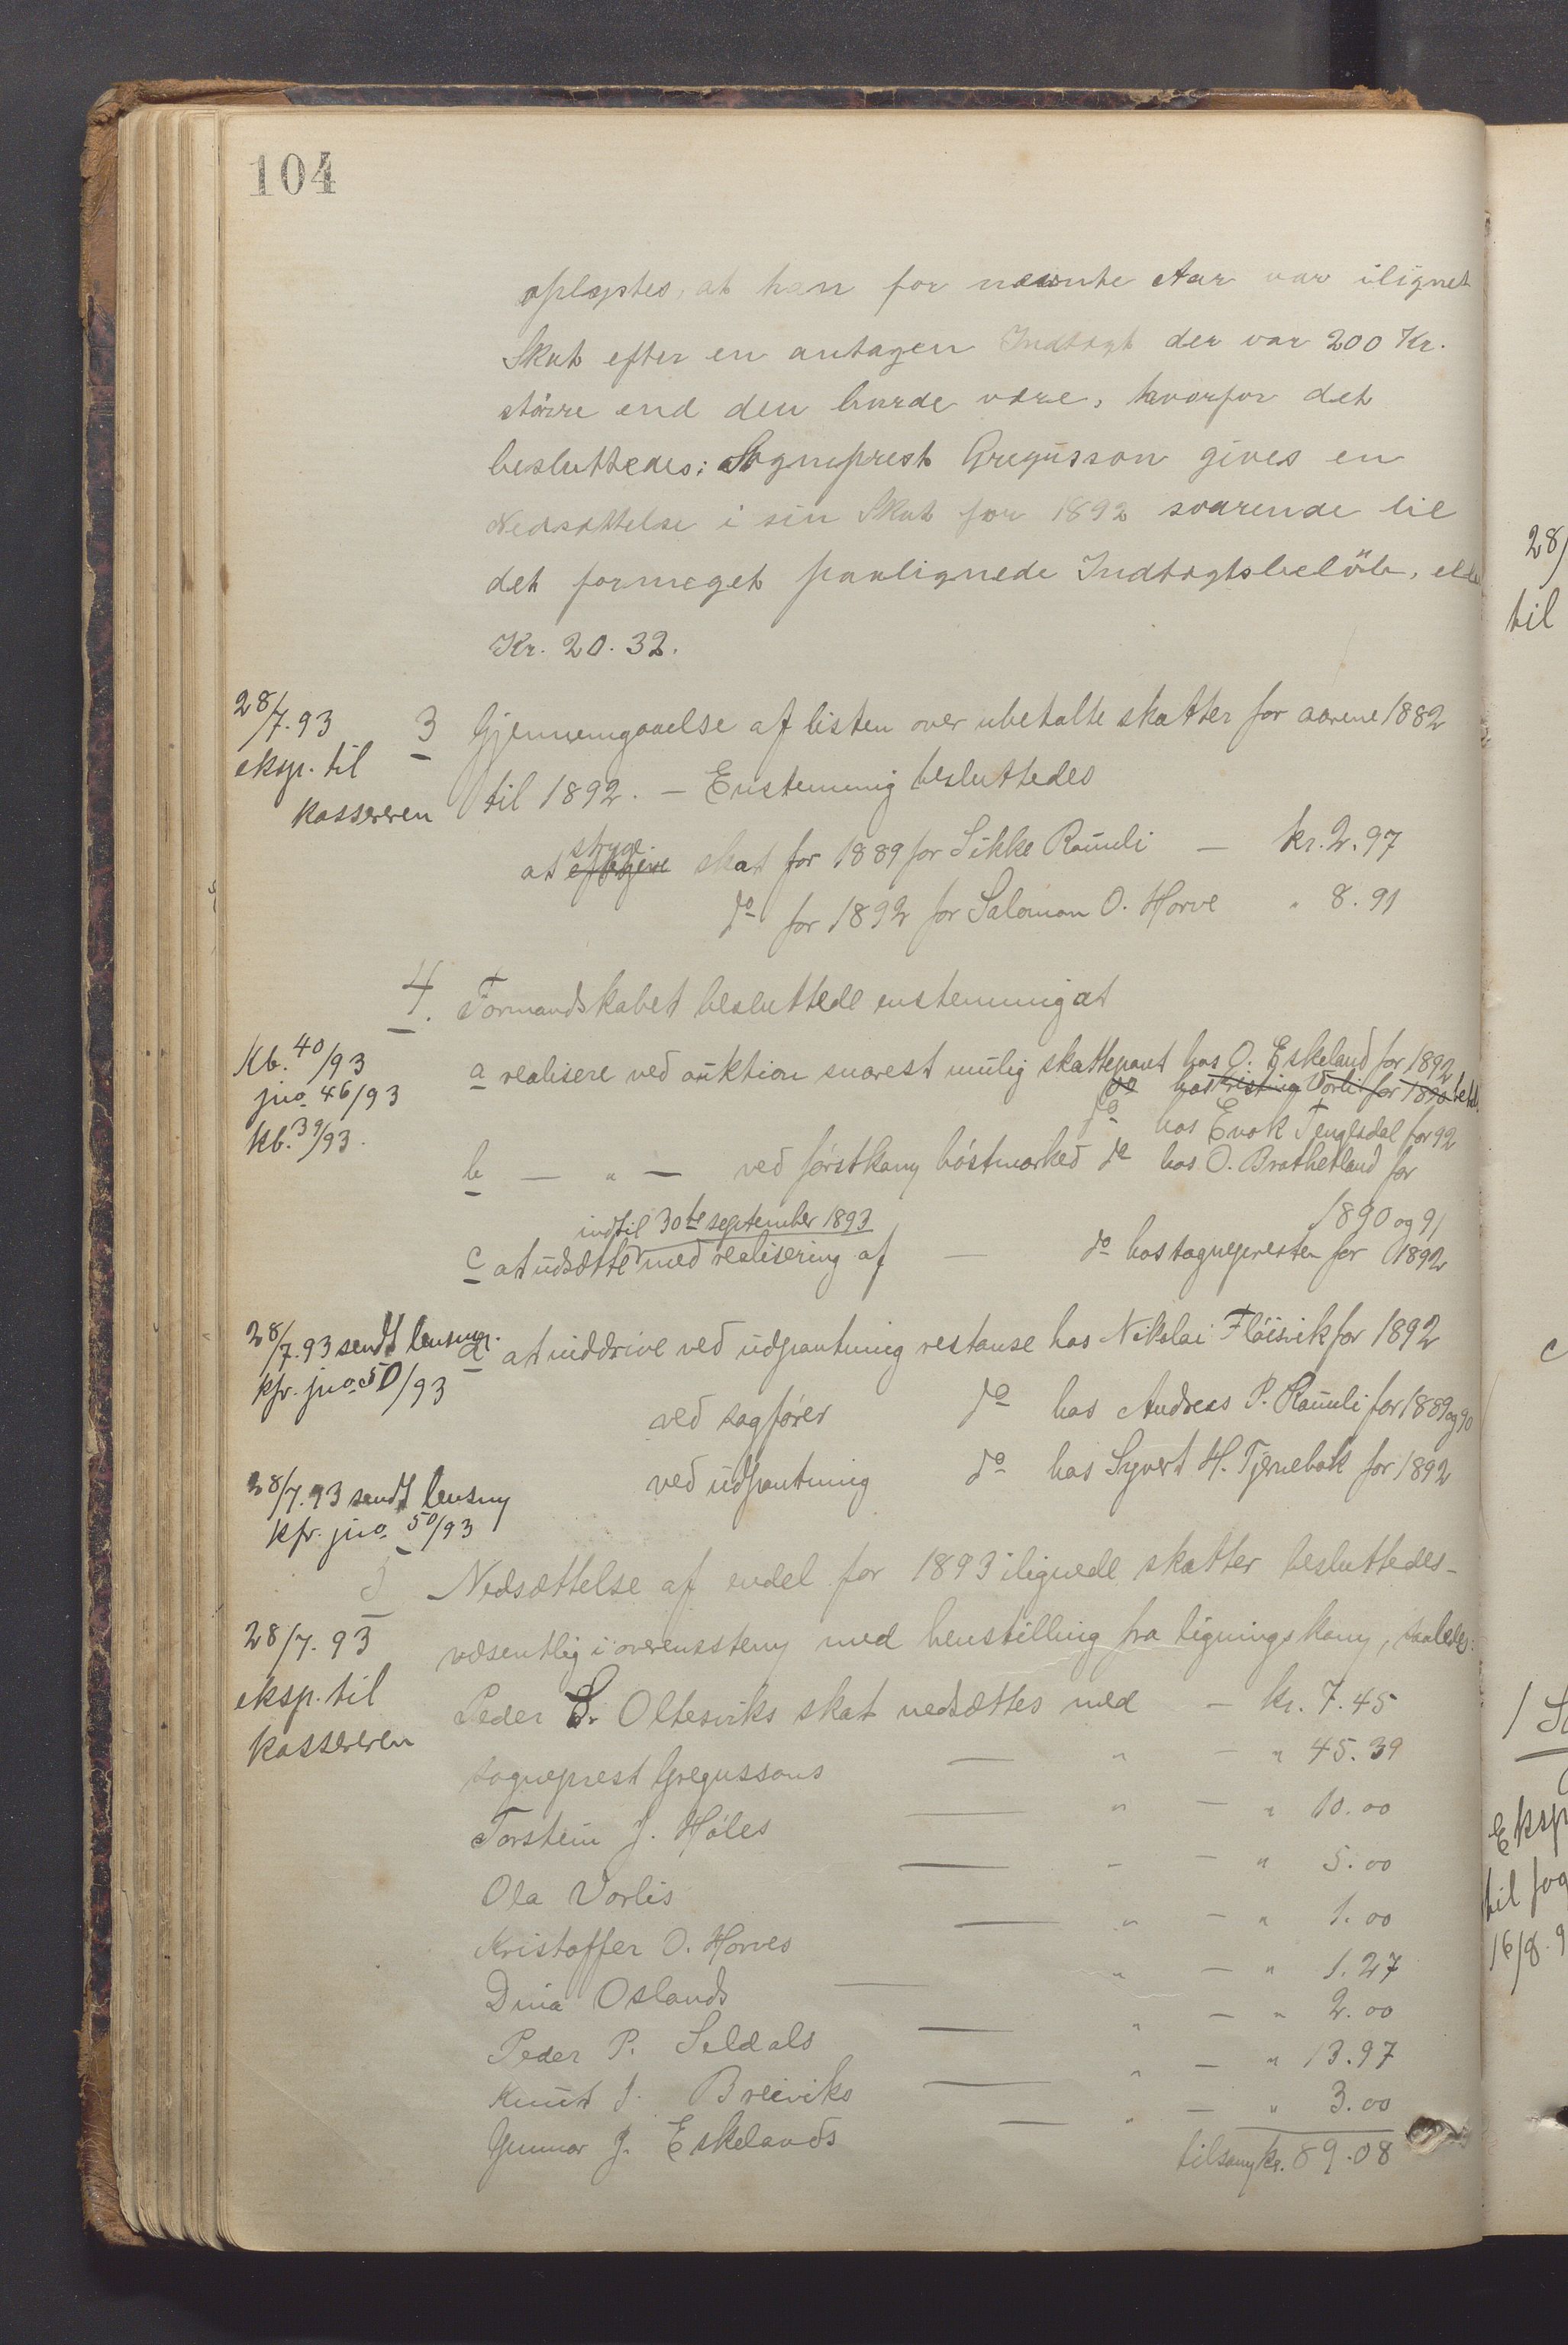 104
oplystes, at han for nævnte Aar var ilignet
Skat efter en antagen Indtægt der var 200 Kr.
större end den burde være, hvorfor det
besluttedes: Sogneprest Gregusson gives en
Nedsættelse i sin Skat for 1892 svarende til
det formeget paalignede Indtægtsbelöb, eller
Kr. 20.32.
28/7.93
eksp. til
kassereren
3 Gjennemgaaelse af listen over ubetalte skatter for aarene 1882
til 1892. — Enstemmig besluttedes
stryge
at eftergive skat for 1889 for Sikke Raunli — kr. 2.97
do for 1892 for Salomon O. Horve " 8.91
4. Formandskabet besluttede enstemmig at
Kb. 40/93
jno. 46/93
kb. 39/93.
a realisere ved auktion snarest mulig skattepant hos O. Eskeland for 1892
do hos Kristing Vorli for 1890 bet.
do hos Enok Tengesdal for 92
b — " — ved førstkom høstmarked do hos O. Brathetland for
1890 og 91
indtil 30te september 1893
c at udsætte med realisering af — do hos sognepresten for 1892
28/7.93 sendt lensm.
kfr. jno. 50/93
d at inddrive ved udpantning restanse hos Nikolai Fløisvik for 1892
ved sagfører do hos Andreas P. Raunli for 1889 og 90
28/7.93 sendt lensm
kfr. jno. 50/93
ved udpantning do hos Syvert H. Tjernebak for 1892
5 Nedsættelse af endel for 1893 ilignede skatter besluttedes-
28/7.93
eksp. til
kassereren
væsentlig i overensstem med henstilling fra ligningskom, saaledes:
Peder S. Oltesviks skat nedsættes med — kr. 7.45
sogneprest Gregussons — " — " 45.39
Torstein J. Høles — " — " 10.00
Ola Vorlis — " — " 5.00
Kristoffer O. Horves — " — " 1.00
Dina Oslands — " — " 1.27
Peder P. Seldals — " — " 2.00
Knut J. Breiviks — " — " 13.97
Gunnar J. Eskelands — " — " 3.00
tilsam kr. 89.08
28/
til
Eksp
til fog
16/8.9